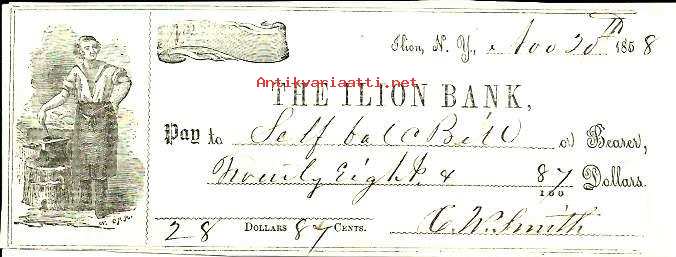 Ilion, N. Y., Nov 20th 1858
Antikvariaatti.net
THE ILION BANK,
Pay to Self bal c Bill or Bearer,
Twenty Eight & 87/100 Dollars.
28 DOLLARS 87 CENTS.
C. W. Smith